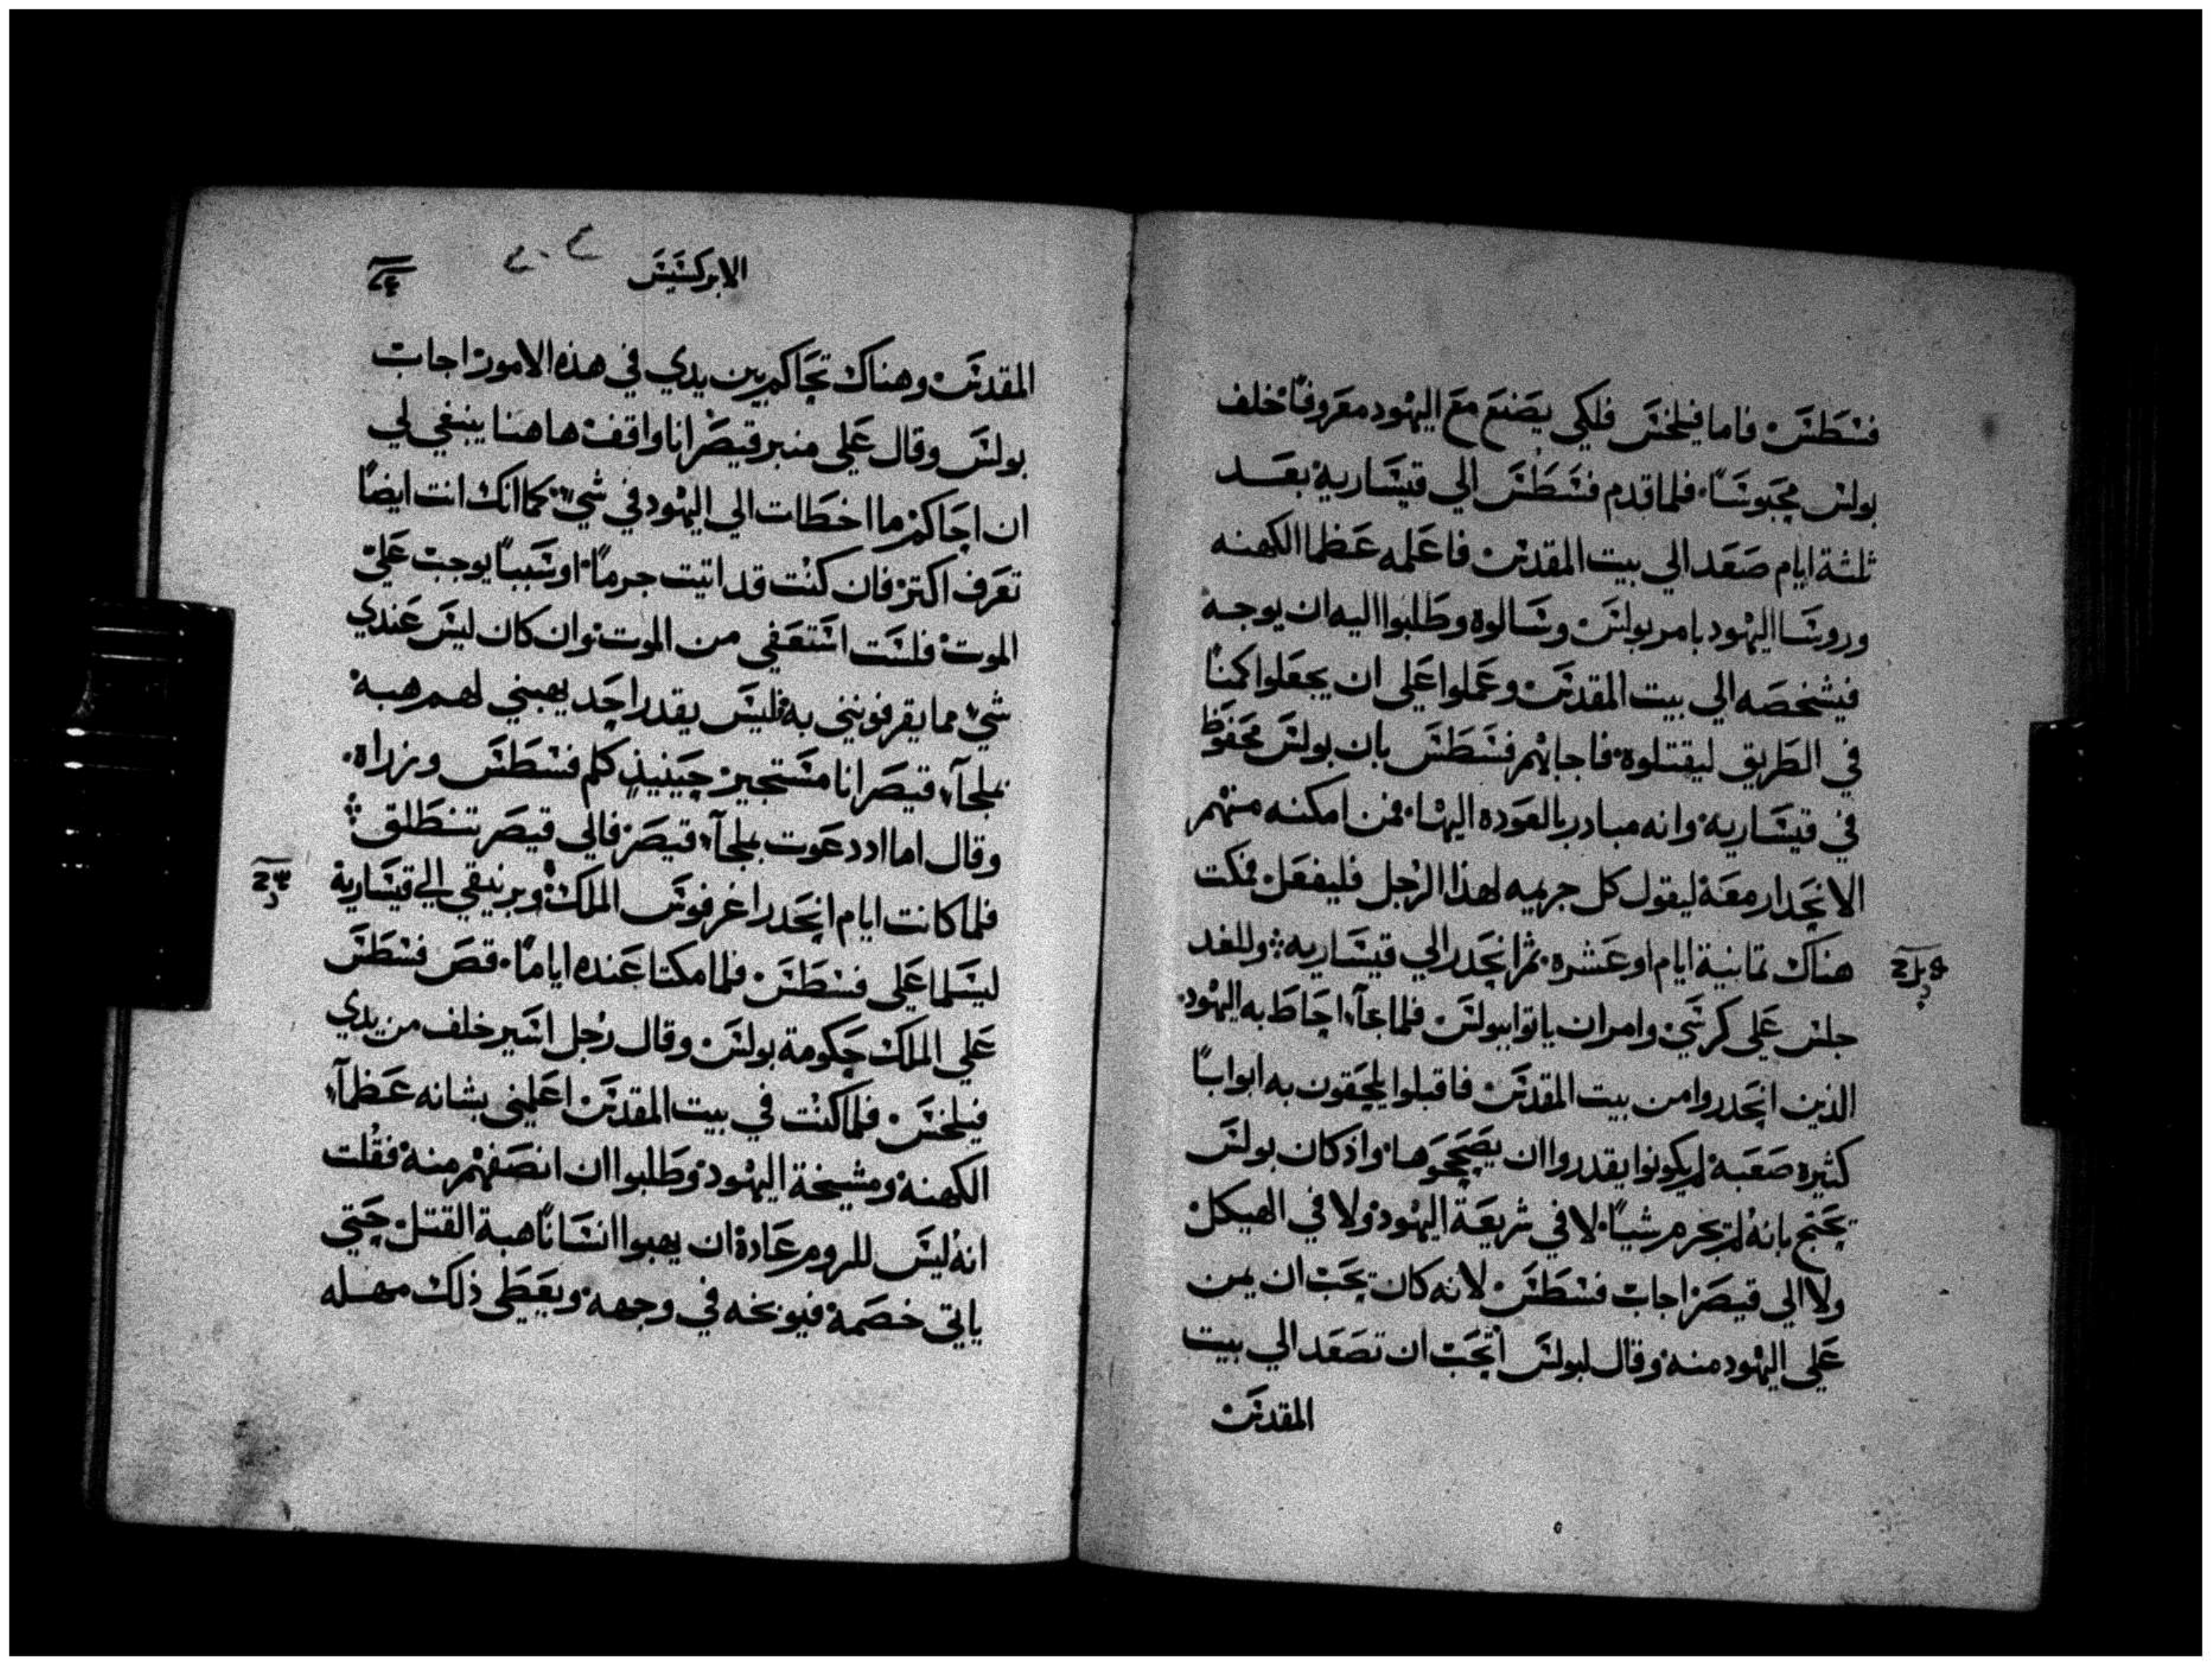 فسطس فاما فيلخس فلكي يصنع مع اليهود معروفًا خلف
بولس محبوسًا فلما قدم فسطس الي قيسارية بعد
ثلثة ايام صعد الي بيت المقدس فاعلمه عظما الكهنه
وروسا اليهود بامر بولس وسالوه وطلبوا اليه ان يوجه
فيشخصه الي بيت المقدس وعملوا علي ان يجعلوا كمنًا
في الطريق ليقتلوه فاجابهم فسطس بان بولس محفوظ
في قيسارية وانه مبادر بالعوده اليها فمن امكنه منهم
الانحدار معه ليقول كل جريمه لهذا الرجل فليفعل فمكت
هناك تمانية ايام او عشره ثم انحدر الي قيساريه وللغد
جلس علي كرسي وامر ان ياتوا ببولس فلما جآء احاط به اليهود
الذين انحدروا من بيت المقدس فاقبلوا يلحقون به ابوابًا
كثيره صعبة لم يكونوا يقدروا ان يصححوها واذ كان بولس
يحتج بانه لم يجرم شيًا لا في شريعة اليهود ولا في الهيكل
ولا الي قيصر اجاب فسطس لانه كان يحب ان يمن
علي اليهود منه وقال لبولس اتحب ان تصعد الي بيت
المقدس
الابركسيس
المقدس وهناك تحاكم بين يدي في هذه الامور اجاب
بولس وقال علي منبر قيصر انا واقف هاهنا ينبغي لي
ان احاكم ما اخطات الي اليهود في شيء كما انك انت ايضًا
تعرف اكتر فان كنت قد اتيت جرمًا او سببًا يوجب علي
الموت فلست استعفي من الموت وان كان ليس عندي
شيء مما يقرفونني به فليس يقدر احد يهبني لهم هبة
بملجآء قيصر انا مستجير حينيذ كلم فسطس وزراه
وقال اما اد دعوت بملجآء قيصر فالي قيصر تنطلق
فلما كانت ايام انحدر اغرفوس الملك وبرنيقي الي قيسارية
ليسلما علي فسطس فلما مكتا عنده ايامًا قص فسطس
علي الملك حكومة بولس وقال رجل اسير خلف من يدي
فيلخس فلما كنت في بيت المقدس اعلمني بشانه عظمآء
الكهنة ومشيخة اليهود وطلبوا ان انصفهم منه فقلت
انه ليس للروم عادة ان يهبوا انسانًا هبة القتل حتي
ياتي خصمة فيوبخه في وجهه ويعطي ذلك مهله